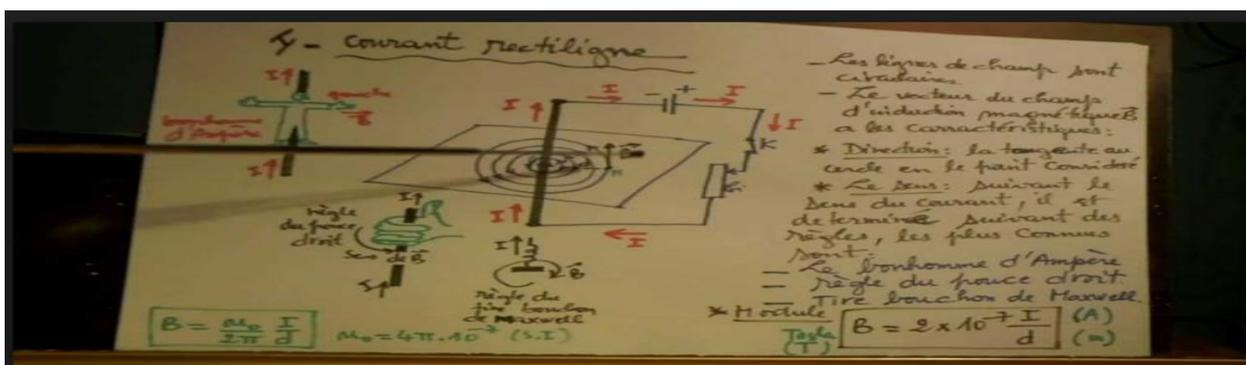 I - Courant rectiligne
I
gauche
B
bonhomme
d'Ampère
I
I
I
- +
I
I
K
I
I
règle
du pouce
droit
I
Sens de B
I
I
B
règle du
tire bouchon
de Maxwell
B = μ₀/2π I/d
μ₀ = 4π.10⁻⁷ (S.I)
- Les lignes de champ sont
circulaires
- Le vecteur du champ
d'induction magnétique B
a les carractéristiques:
* Direction: la tangente au
cercle en le point considéré
* Le sens: suivant le
sens du courant, il est
determinée suivant des
règles, les plus connues
sont:
- Le bonhomme d'Ampère
- règle du pouce droit.
- Tire bouchon de Maxwell.
* Module
Tesla
(T)
B = 2 × 10⁻⁷ I/d
(A)
(m)